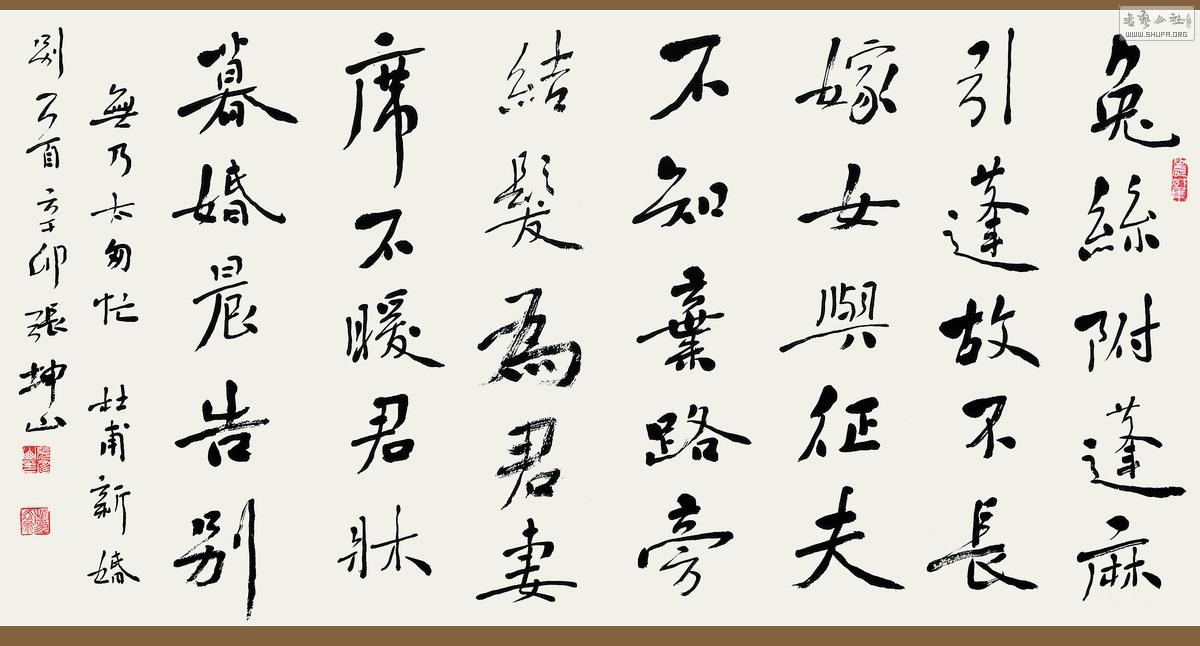 兔絲附蓬麻
引蓬故不長
嫁女與征夫
不知棄路旁
結髮為君妻
席不暖君牀
暮婚晨告別
無乃太匆忙 杜甫新婚
別 辛卯 張坤山
WWW.SHUFA.ORG